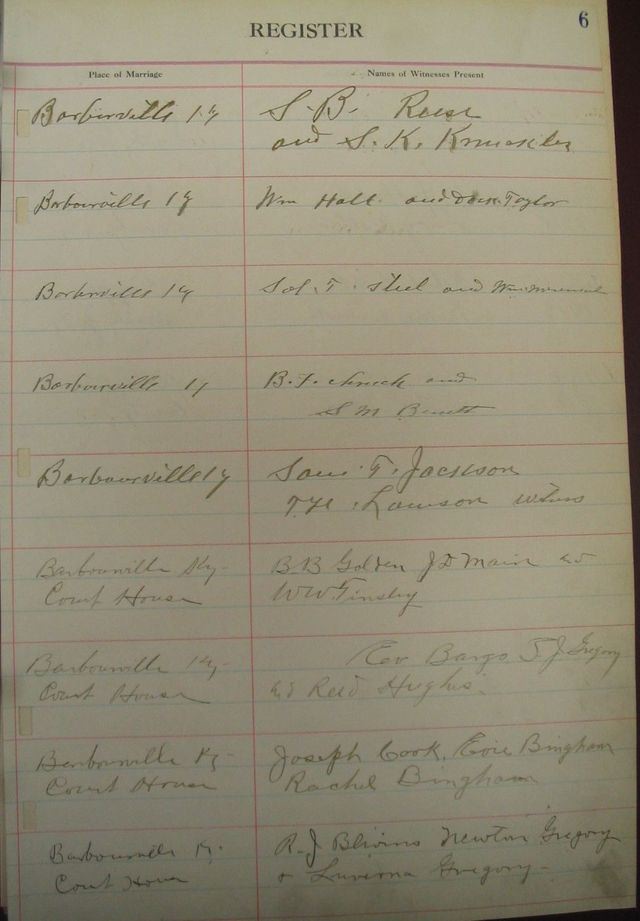 6
REGISTER
Place of Marriage Names of Witnesses Present
Barbourville Ky S. B. Reese
and S. K.
Barbourville Ky Wm Hall and Taylor
Barbourville Ky Sol. T. Steel and Wm
Barbourville Ky B. F. and
S M
Barbourville Ky Sam. T. Jackson
Lawson
Barbourville Ky- B B Golden J D Main
Court House W W Tinsley
Barbourville Ky- Bargo T. J Gregory
Court House Reed Hughes.
Barbourville Ky- Joseph Cook, Bingham
Court House Rachel Bingham
Barbourville Ky. R. J Blivins Newton Gregory
Court House & Gregory-